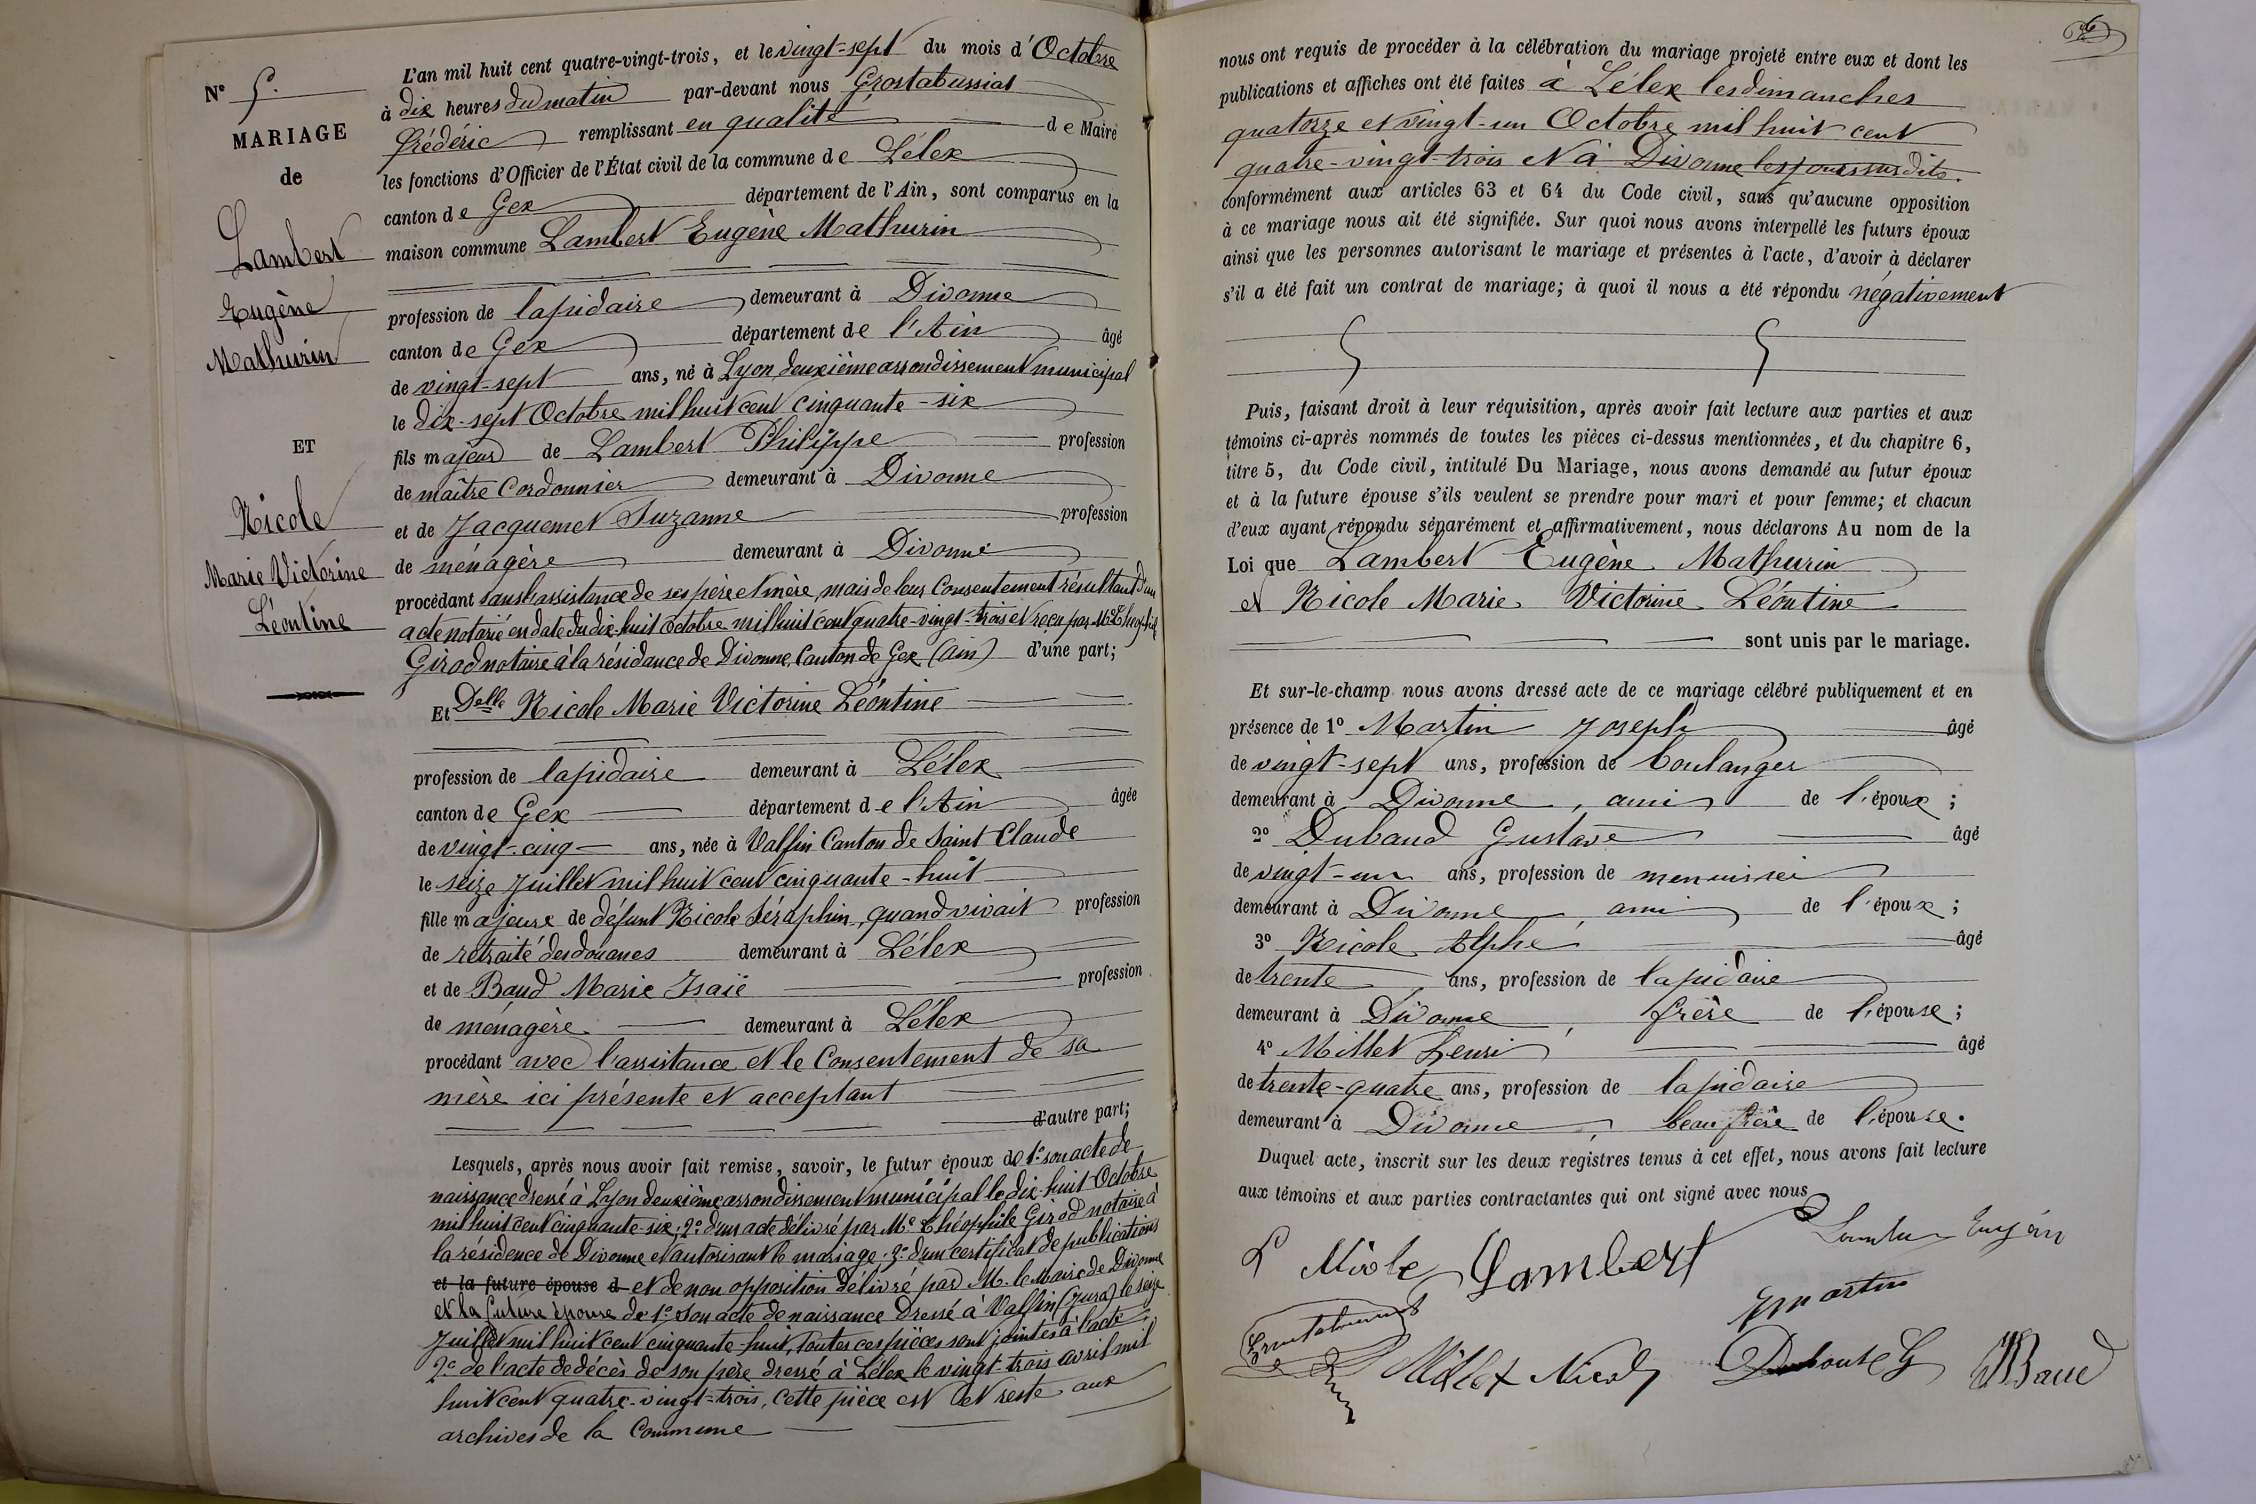 N° 5.
MARIAGE
de
Lambert
Eugène
Mathurin
ET
Nicole
Marie Victorine
Léontine
L'an mil huit cent quatre-vingt-trois, et le vingt-sept du mois d'Octobre
à dix heures du matin par-devant nous Grostabussiat
frédéric remplissant en qualité de Maire
les fonctions d'Officier de l'État civil de la commune de Lélex
canton de Gex département de l'Ain, sont comparus en la
maison commune Lambert Eugène Mathurin
profession de lapidaire demeurant à Divonne
canton de Gex département de l'Ain âgé
de vingt-sept ans, né à Lyon deuxième arrondissement municipal
le dix-sept Octobre mil huit cent cinquante-six
fils majeur de Lambert Philippe profession
de maître Cordonnier demeurant à Divonne
et de Jacquemet Suzanne profession
de ménagère demeurant à Divonne
procédant sans l'assistance de ses père et mère, mais de leur Consentement résultant d'un
acte notarié en date du dix-huit octobre mil huit cent quatre-vingt-trois et reçu par Me Théophile
Girod notaire à la résidence de Divonne, Canton de Gex (Ain) d'une part;
Et Delle Nicole Marie Victorine Léontine
profession de lapidaire demeurant à Lélex
canton de Gex département de l'Ain âgée
de vingt-cinq ans, née à Valfin Canton de Saint Claude
le seize Juillet mil huit cent cinquante-huit
fille majeure de défunt Nicole Séraphin, quand vivait profession
de retraité des douanes demeurant à Lélex
et de Baud Marie Isaïe profession
de ménagère demeurant à Lélex
procédant avec l'assistance et le Consentement de sa
mère ici présente et acceptant
d'autre part;
Lesquels, après nous avoir fait remise, savoir, le futur époux de 1° son acte de
naissance dressé à Lyon deuxième arrondissement municipal le dix-huit Octobre
mil huit cent cinquante-six; 2° d'un acte délivré par Me Théophile Girod notaire à
la résidence de Divonne et autorisant le mariage; 3° d'un certificat de publications
et la future épouse d et de non opposition délivré par M. le Maire de Divonne
et la future épouse de 1° son acte de naissance dressé à Valfin (Jura) le seize
Juillet mil huit cent cinquante-huit, toutes ces pièces sont jointes à l'acte,
2° de l'acte de décès de son père dressé à Lélex le vingt-trois avril mil
huit cent quatre-vingt-trois, cette pièce est et reste aux
archives de la Commune
nous ont requis de procéder à la célébration du mariage projeté entre eux et dont les
publications et affiches ont été faites à Lélex les dimanches
quatorze et vingt-un Octobre mil huit cent
quatre-vingt-trois et à Divonne les jours susdits.
conformément aux articles 63 et 64 du Code civil, sans qu'aucune opposition
à ce mariage nous ait été signifiée. Sur quoi nous avons interpellé les futurs époux
ainsi que les personnes autorisant le mariage et présentes à l'acte, d'avoir à déclarer
s'il a été fait un contrat de mariage; à quoi il nous a été répondu négativement
Puis, faisant droit à leur réquisition, après avoir fait lecture aux parties et aux
témoins ci-après nommés de toutes les pièces ci-dessus mentionnées, et du chapitre 6,
titre 5, du Code civil, intitulé Du Mariage, nous avons demandé au futur époux
et à la future épouse s'ils veulent se prendre pour mari et pour femme; et chacun
d'eux ayant répondu séparément et affirmativement, nous déclarons Au nom de la
Loi que Lambert Eugène Mathurin
et Nicole Marie Victorine Léontine
sont unis par le mariage.
Et sur-le-champ nous avons dressé acte de ce mariage célébré publiquement et en
présence de 1° Martin Joseph âgé
de vingt-sept ans, profession de boulanger
demeurant à Divonne, ami de l'époux;
2° Dubaud Gustave âgé
de vingt-un ans, profession de menuisier
demeurant à Divonne, ami de l'époux;
3° Nicole Alphé âgé
de trente ans, profession de lapidaire
demeurant à Divonne, frère de l'épouse;
4° Millet Henri âgé
de trente-quatre ans, profession de lapidaire
demeurant à Divonne, beau frère de l'épouse.
Duquel acte, inscrit sur les deux registres tenus à cet effet, nous avons fait lecture
aux témoins et aux parties contractantes qui ont signé avec nous
L Nicole Lambert Lambert Eugène
J Martin
Grostabussiat
Millet Nicole G Baud